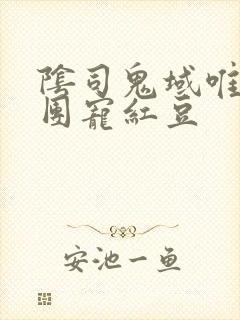 陰司鬼域唯
團寵紅豆
安池一鱼